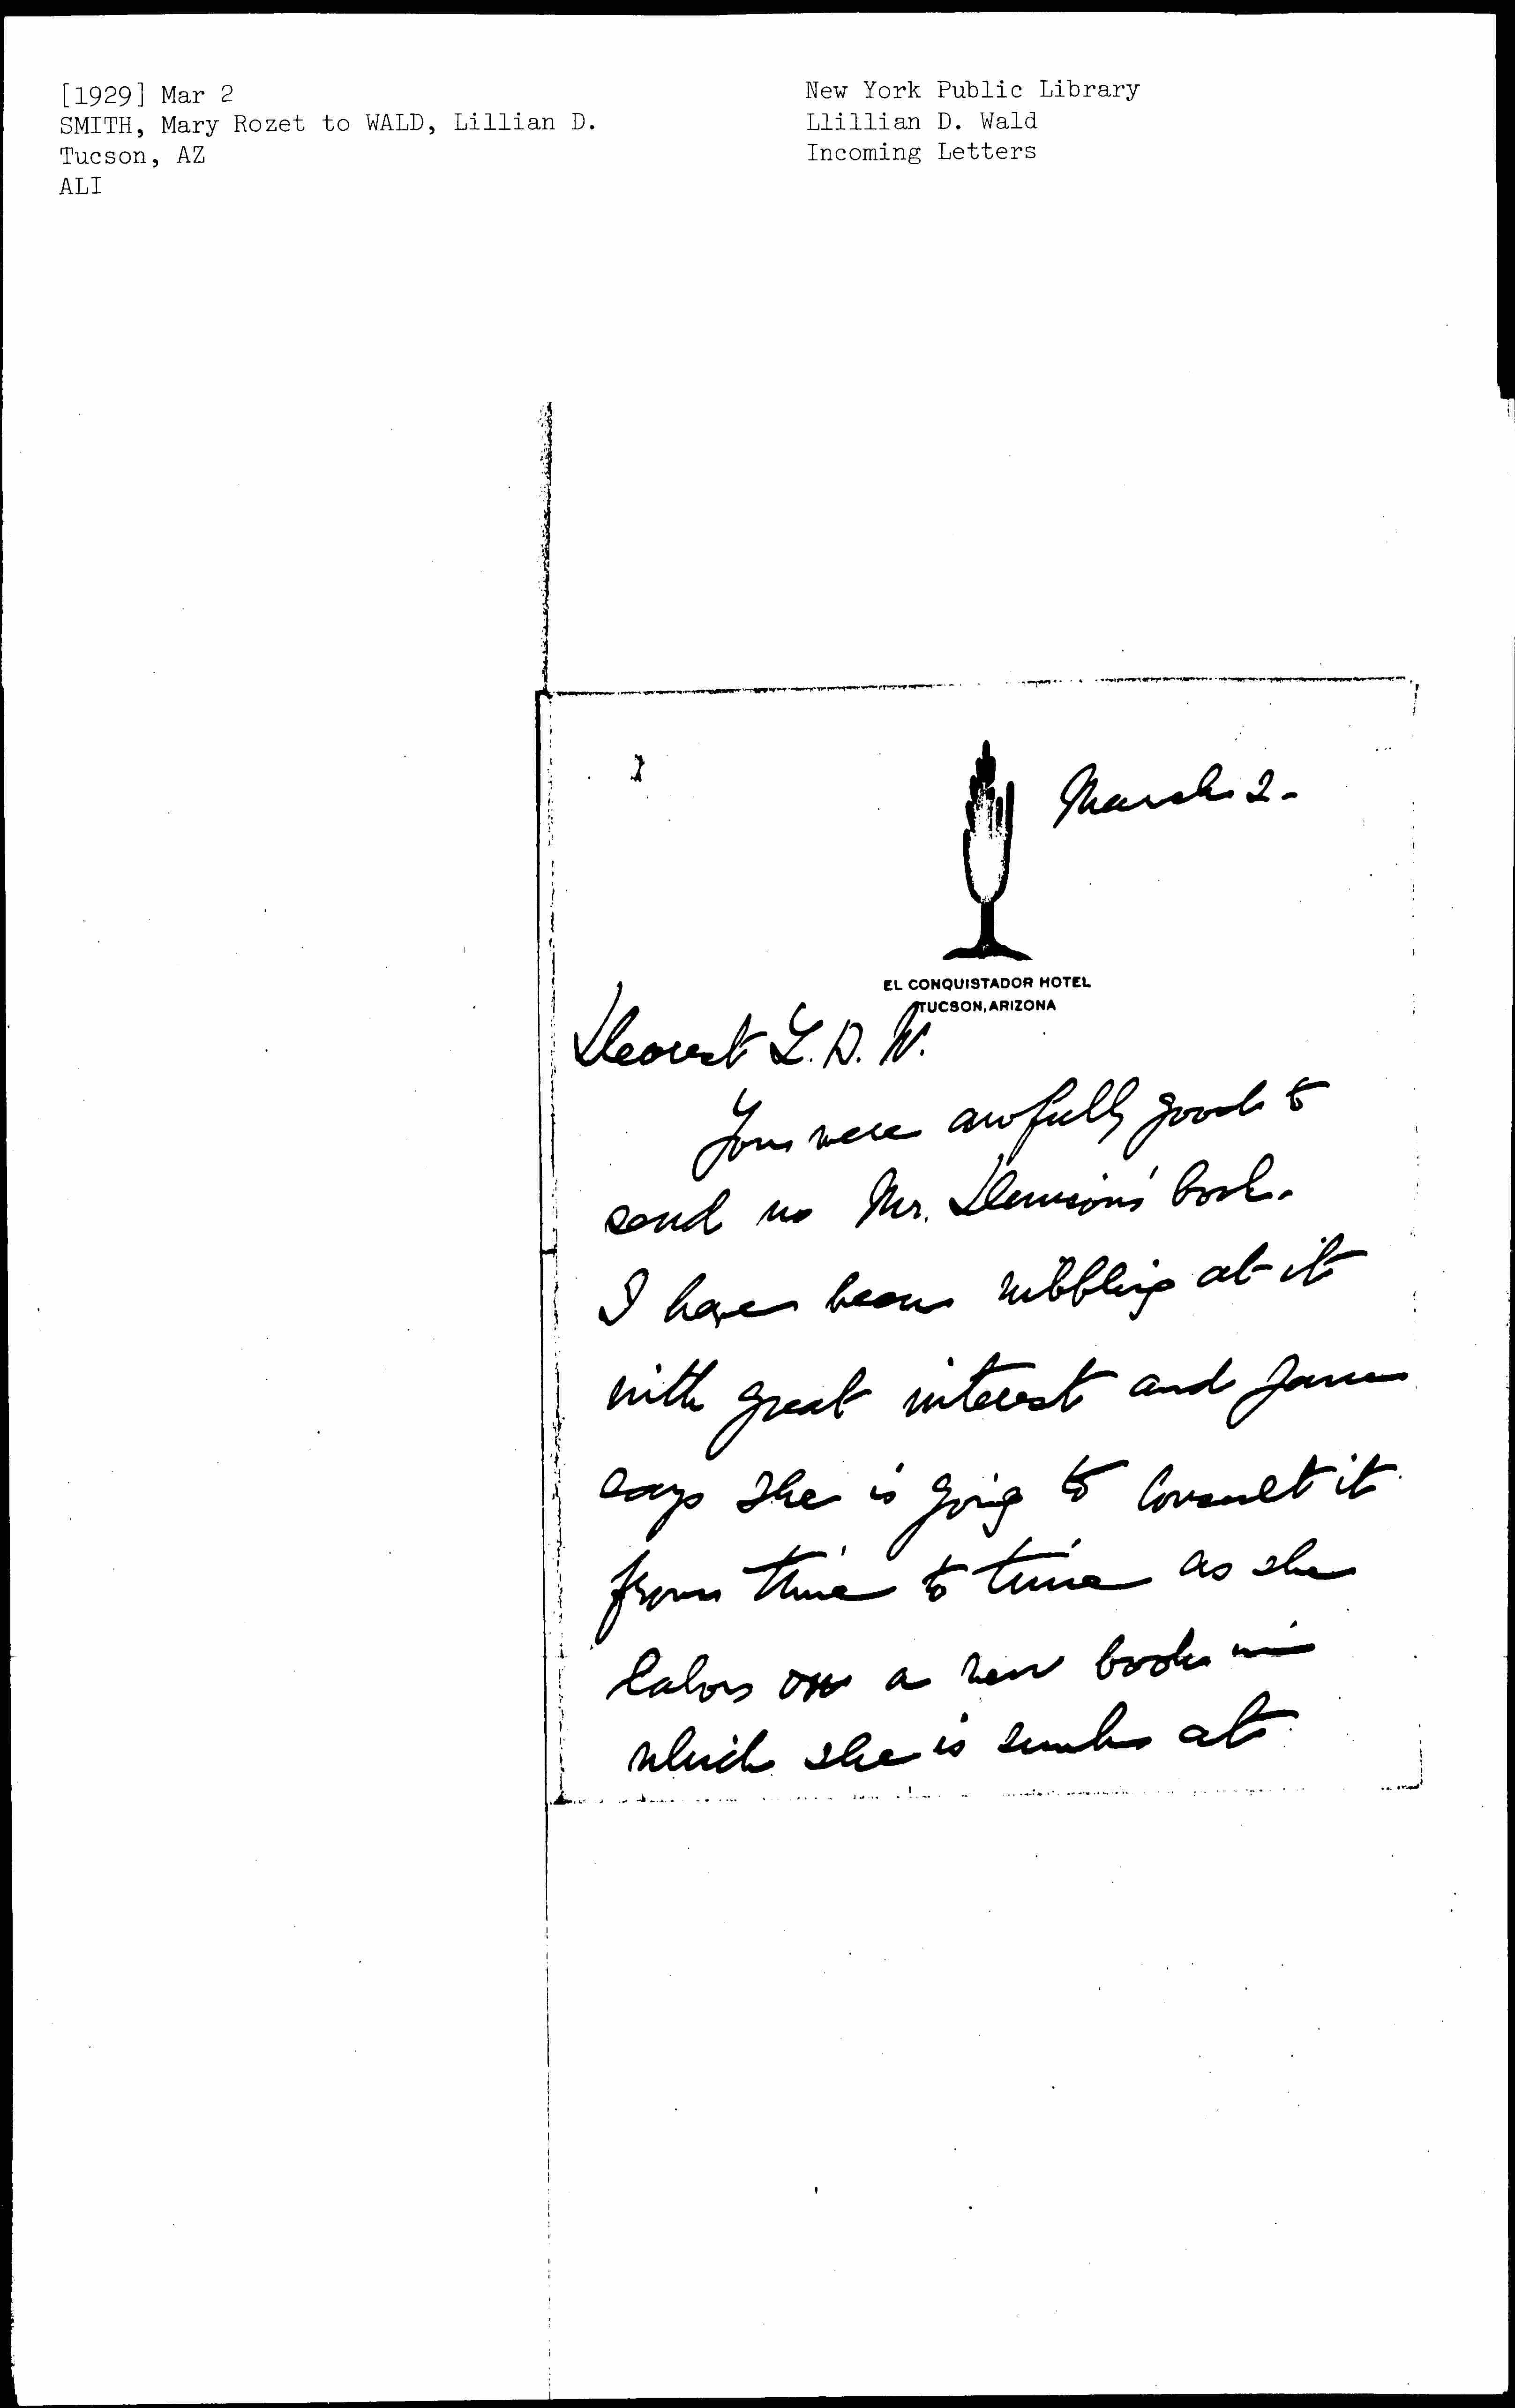 [1929] Mar 2
SMITH, Mary Rozet to WALD, Lillian D.
Tucson, AZ
ALI
New York Public Library
Llillian D. Wald
Incoming Letters
March 2-
EL CONQUISTADOR HOTEL
TUCSON, ARIZONA
Dearest L. D. W.
You were awfully good to
send us Mr. Denison's book.
I have been nibbling at it
with great interest and Jane
says she is going to consult it
from time to time as she
labors on a new book in
which she is sunk at